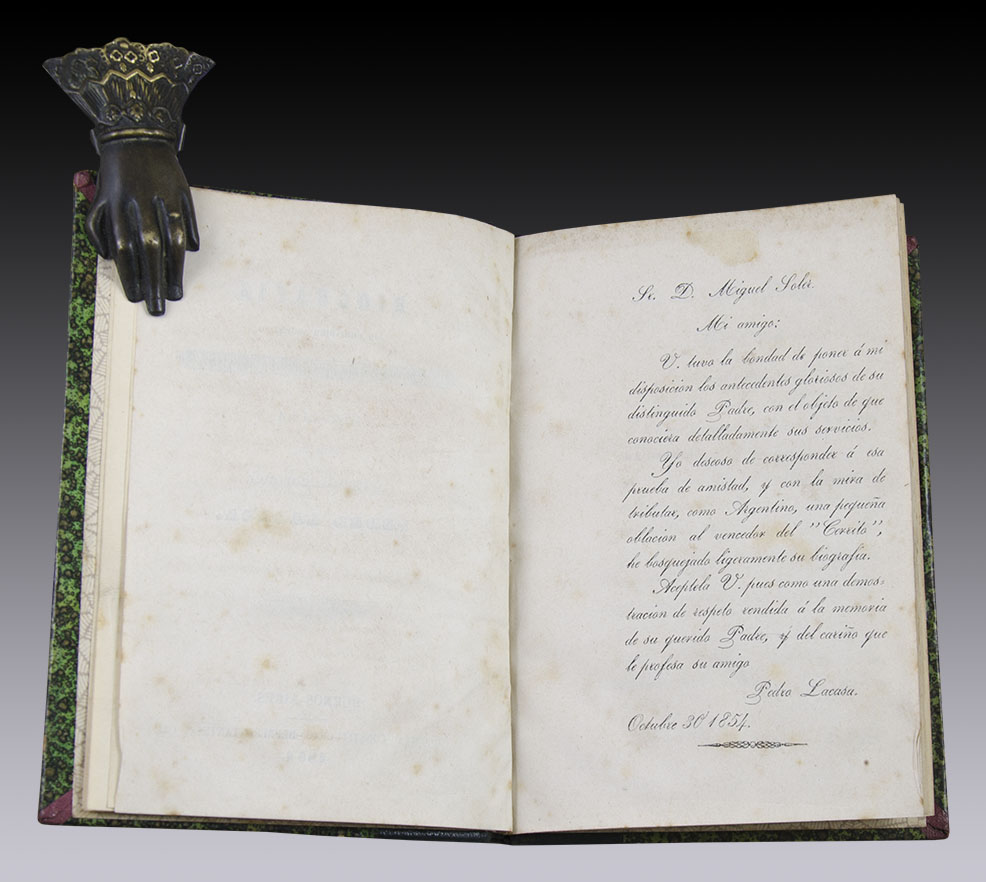 Sr. D. Miguel Soler.
Mi amigo:
V. tuvo la bondad de poner á mi
disposicion los antecedentes gloriosos de su
distinguido Padre, con el objeto de que
conociera detalladamente sus servicios.
Yo deseoso de corresponder á esa
prueba de amistad, y con la mira de
tributar, como Argentino, una pequeña
oblacion al vencedor del "Cerrito",
he bosquejado ligeramente su biografia.
Aceptela V. pues como una demos-
tracion de respeto rendida á la memoria
de su querido Padre, y del cariño que
le profesa su amigo
Pedro Lacasa.
Octubre 30 1854.